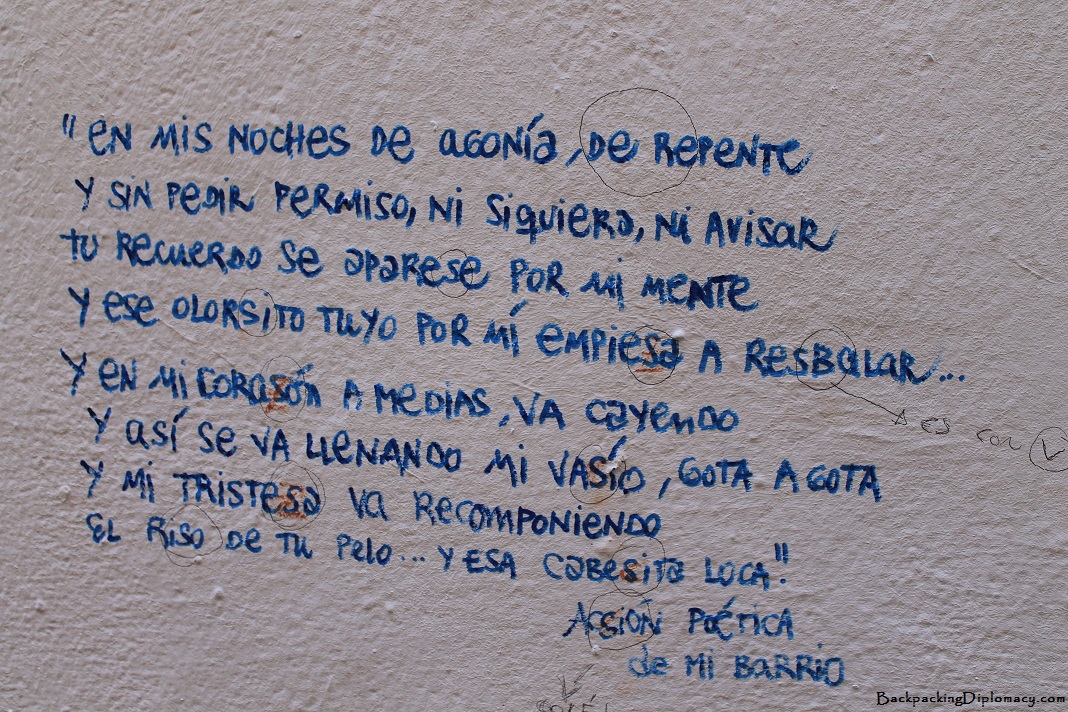 "EN MIS NOCHES DE AGONÍA, DE REPENTE
Y SIN PEDIR PERMISO, NI SIQUIERA, NI AVISAR
TU RECUERDO SE APARESE POR MI MENTE
Y ESE OLORSITO TUYO POR MÍ EMPIESA A RESBALAR...
Y EN MI CORASÓN A MEDIAS, VA CAYENDO
Y ASÍ SE VA LLENANDO MI VASÍO, GOTA A GOTA
Y MI TRISTESA VA RECOMPONIENDO
EL RISO DE TU PELO... Y ESA CABESITA LOCA".
ACSIÓN POÉTICA
de MI BARRIO
es con V
BackpackingDiplomacy.com